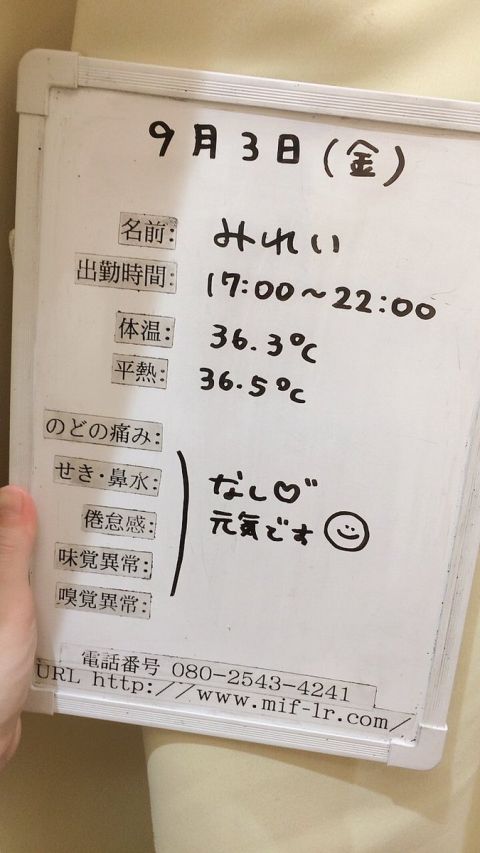 9月3日(金)
名前: みれい
出勤時間: 17:00～22:00
体温: 36.3℃
平熱: 36.5℃
のどの痛み:
せき・鼻水: なし♡"
倦怠感: 元気です☺
味覚異常:
嗅覚異常:
電話番号 080-2543-4241
URL http://www.mif-lr.com/